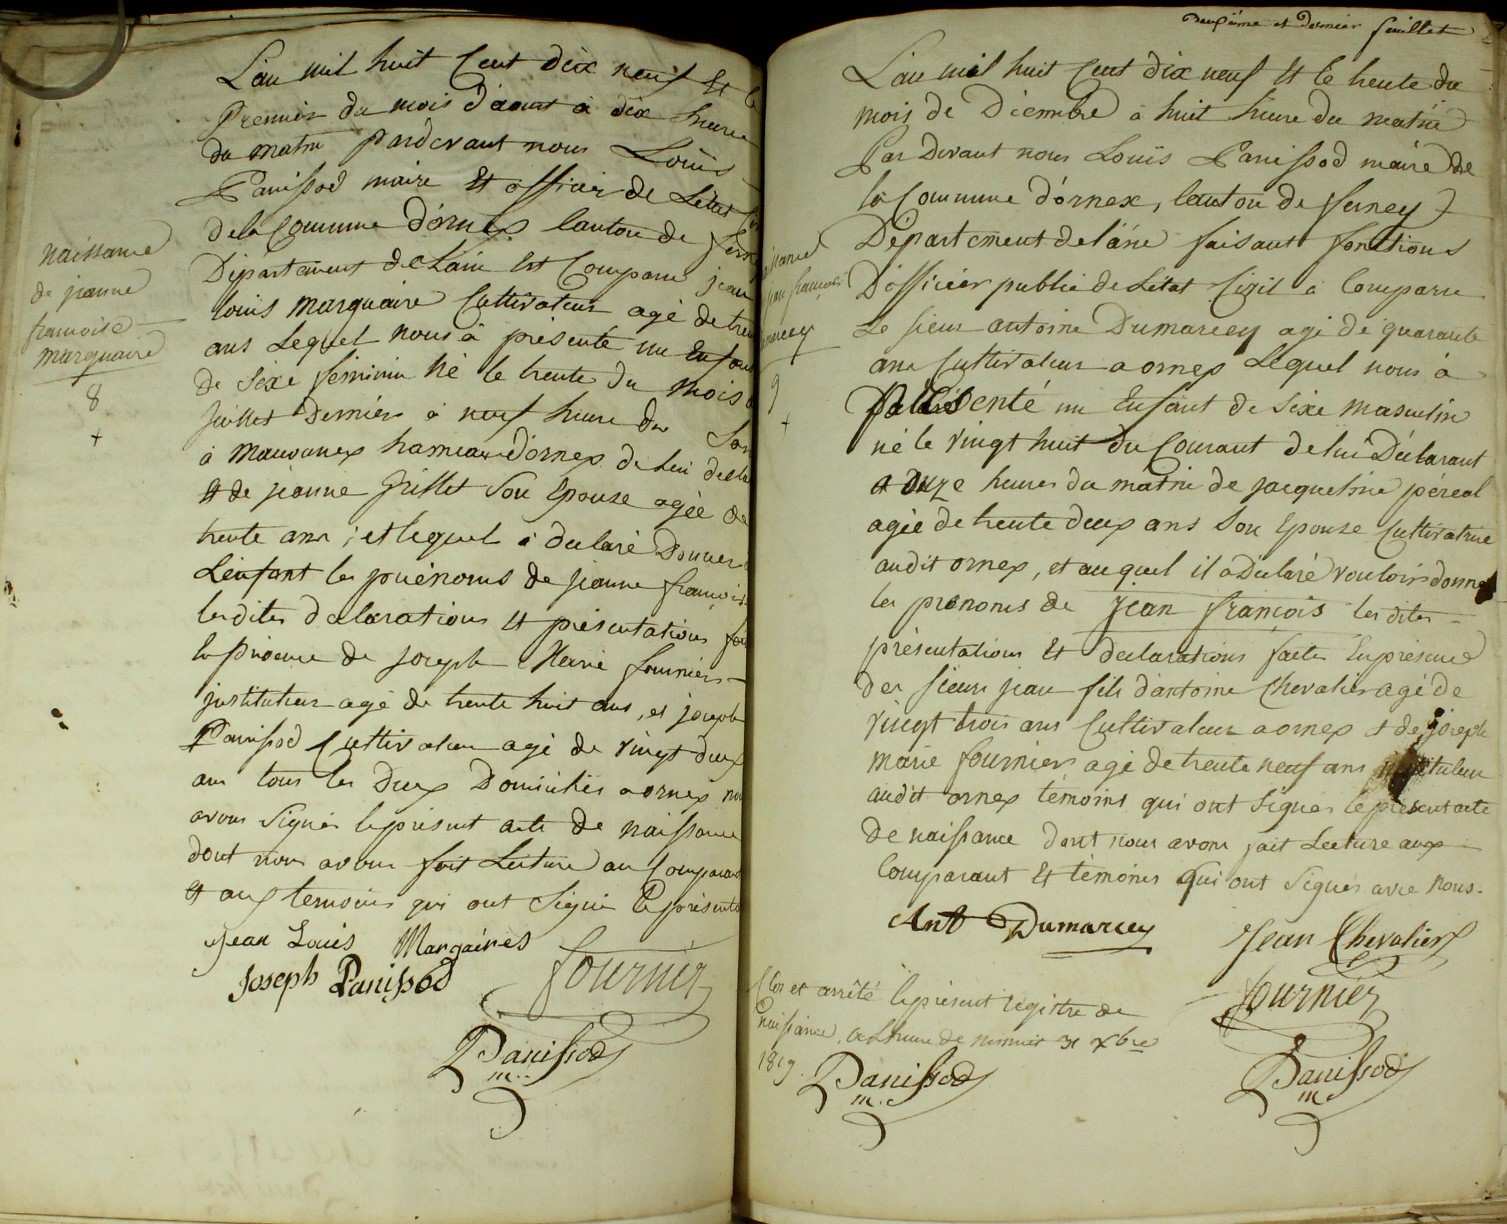 L'an mil huit Cent dix neuf Et le
Premier du mois d'aout à dix heure
du matin pardevant nous Louïs
Panissod maire Et officier de L'état
De la Commune D'ornex Canton de
Département de L'ain Est Comparu jean
louis marquaire Cultivateur agé de
ans Lequel nous à présenté un Enfan
De Sexe féminin né le trente du mois
juillet Dernier à neuf heure du
à Mauvanex hameau D'ornex de lui
et de jeanne Grillet Son Epouse agée de
trente ans ; et lequel à déclaré Donner
L'enfant les prénoms de jeanne françoise
les dites déclarations Et présentations
la présence de joseph Marie fournier
justituteur agé de trente huit ans, et joseph
Panissod Cultivateur agé de vingt deux
ans tous les Deux Domiciliés a ornex
avons Signés le présent acte de naissance
dont nous avons fait Lecture au Comparant
Et aux temoins qui ont Signé le présent
Jean Louis Margaires
Joseph Panissod
fournier
Panissod
m.
naissance
de jeanne
francoise
marquaire
8
+
Deuxième et Dernier feuillet
L'an mil huit Cent dix neuf Et le trente du
mois de Décembre à huit heure du matin
Par Devant nous Louïs Panissod maire de
la Commune d'órnex, Canton de ferney
Département de l'ain faisant fonctions
D'officier public de L'état Civil à Comparu
Le sieur antoine Dumarcey agé de quarante
ans Cultivateur a ornex Lequel nous à
Présenté un Enfant de Sexe masculin
né le vingt huit du Courant de lui Déclarant
a onze heures du matin de jacqueline péréal
agée de trente deux ans Son Epouse Cultivatrice
audit ornex, et auquel il a Déclaré vouloir donner
les prénoms de jean françois les dites
présentations Et declarations faites En présence
des sieurs jean fils d'antoine Chevalier agé de
vingt trois ans Cultivateur a ornex et de joseph
Marie fournier agé de trente neuf ans
audit ornex témoins qui ont Signés le présent acte
De naissance dont nous avons fait Lecture aux
Comparant Et témoins qui ont Signés avec nous.
Ant Dumarcey
Jean Chevalier
fournier
Panissod
m
Clos et arrêté le présent registre de
naissance, a L'heure de minuit 31 xbre
1819.
Panissod
m.
jean françois
9
+